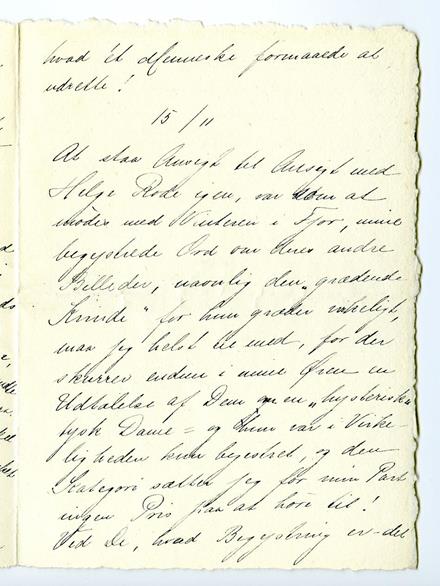 hvad ét Menneske formaaede at
udrette!
15/11
At staa Ansigt til Ansigt med
Helge Rode igen, var som at
mødes med Vinteren i Fjor, mine
begejstrede Ord om deres andre
Billeder, navnlig den „grædende
Kvinde" for hun græder virkeligt,
maa jeg helst tie med, for der
skurrer endnu i mine Øren en
Udtalelse af Dem om en „hysterisk"
tysk Dame = og hun var i Virke-
ligheden kun begejstret, og den
Kategori sætter jeg for min Part
ingen Pris paa at høre til!
Ved De, hvad Begejstring er - det